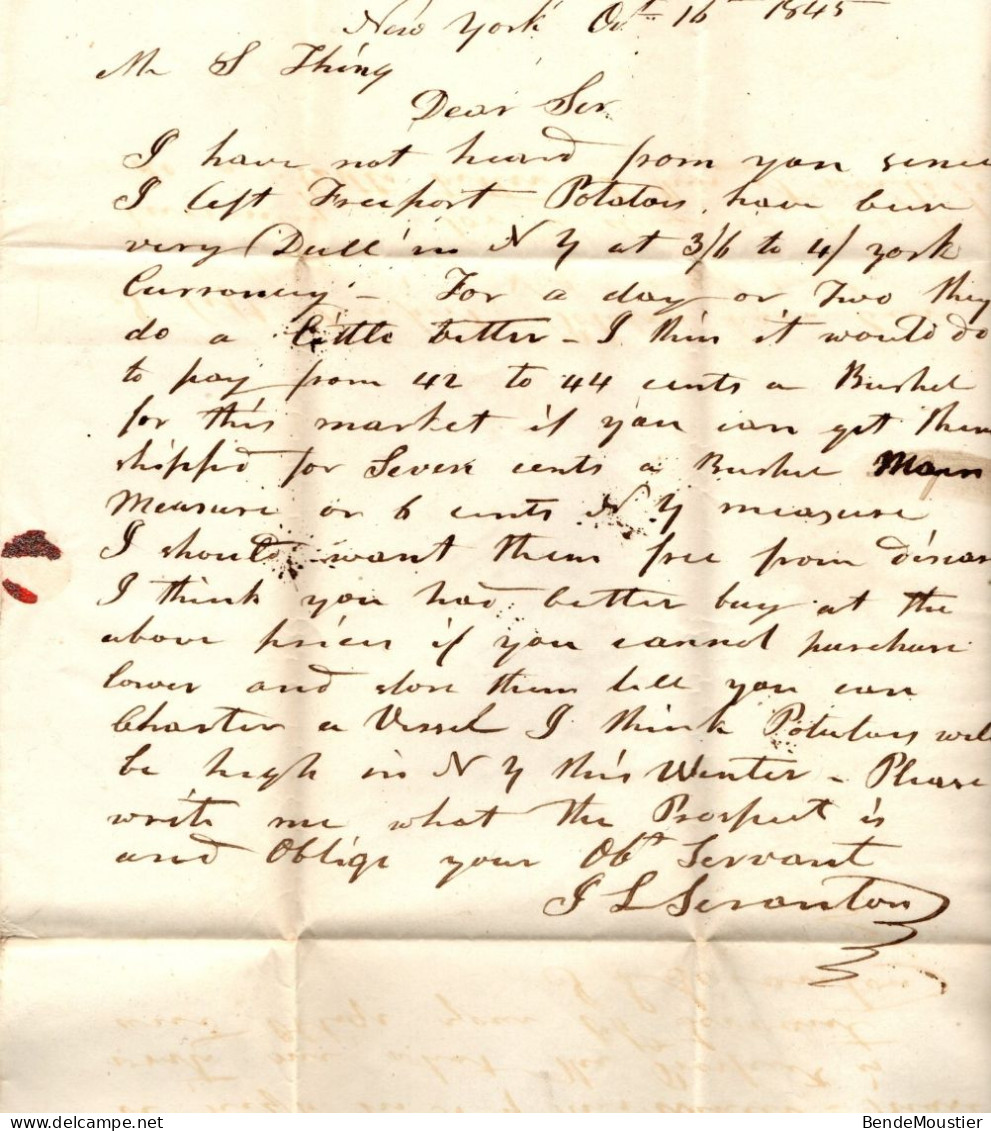 New York Oct 16th 1845
Mr S Thing
Dear Sir
I have not heard from you since
I left Freeport Potatoes have been
very Dull in N Y at 3/6 to 4/ york
Curroncy - For a day or Two they
do a little better - I think it would do
to pay from 42 to 44 cents a Bushel
for this market if you can get them
shipped for Seven cents a Bushel Main
Measure or 6 cents N Y measure
I should want them free from diseas
I think you had better buy at the
above prices if you cannot purchase
lower and store them till you can
Charter a Vessel I think Potatoes will
be high in N Y this Winter - Please
write me what the Prospect is
and Oblige your Obt Servant
J L Scranton
BendeMoustier